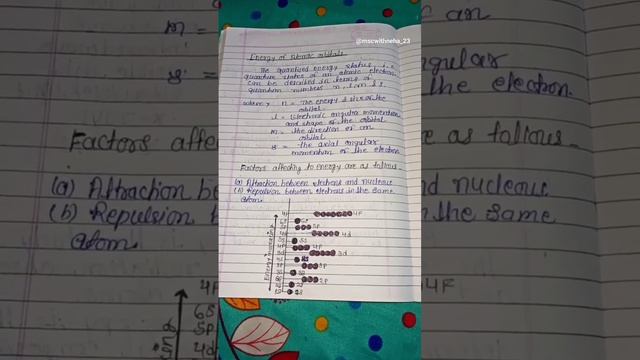 @mscwithneha_23
Energy of Atomic orbitals
The quantised energy status i.e
quantum states of an atomic electron
can be described in terms of
quantum numbers n, l, m & s
where, n = The energy & size of the
orbital.
l = Electronic angular momentum
and shape of the orbital.
m = the direction of an
orbital.
s = the axial angular
momentum of the electron
Factors affecting to energy are as follows -
(a) Attraction between electrons and nucleous
(b) Repulsion between electrons in the same
atom.
4F
6S
5P
4d
5S
4P
3d
4S
3P
3S
2P
2S
1S
Factors affe
(a) Attraction be
(b) Repulsion b
atom.
4F
6S
5P
4d
an
gular
the electron
e as follows -
nd nucleous
n the same
4F